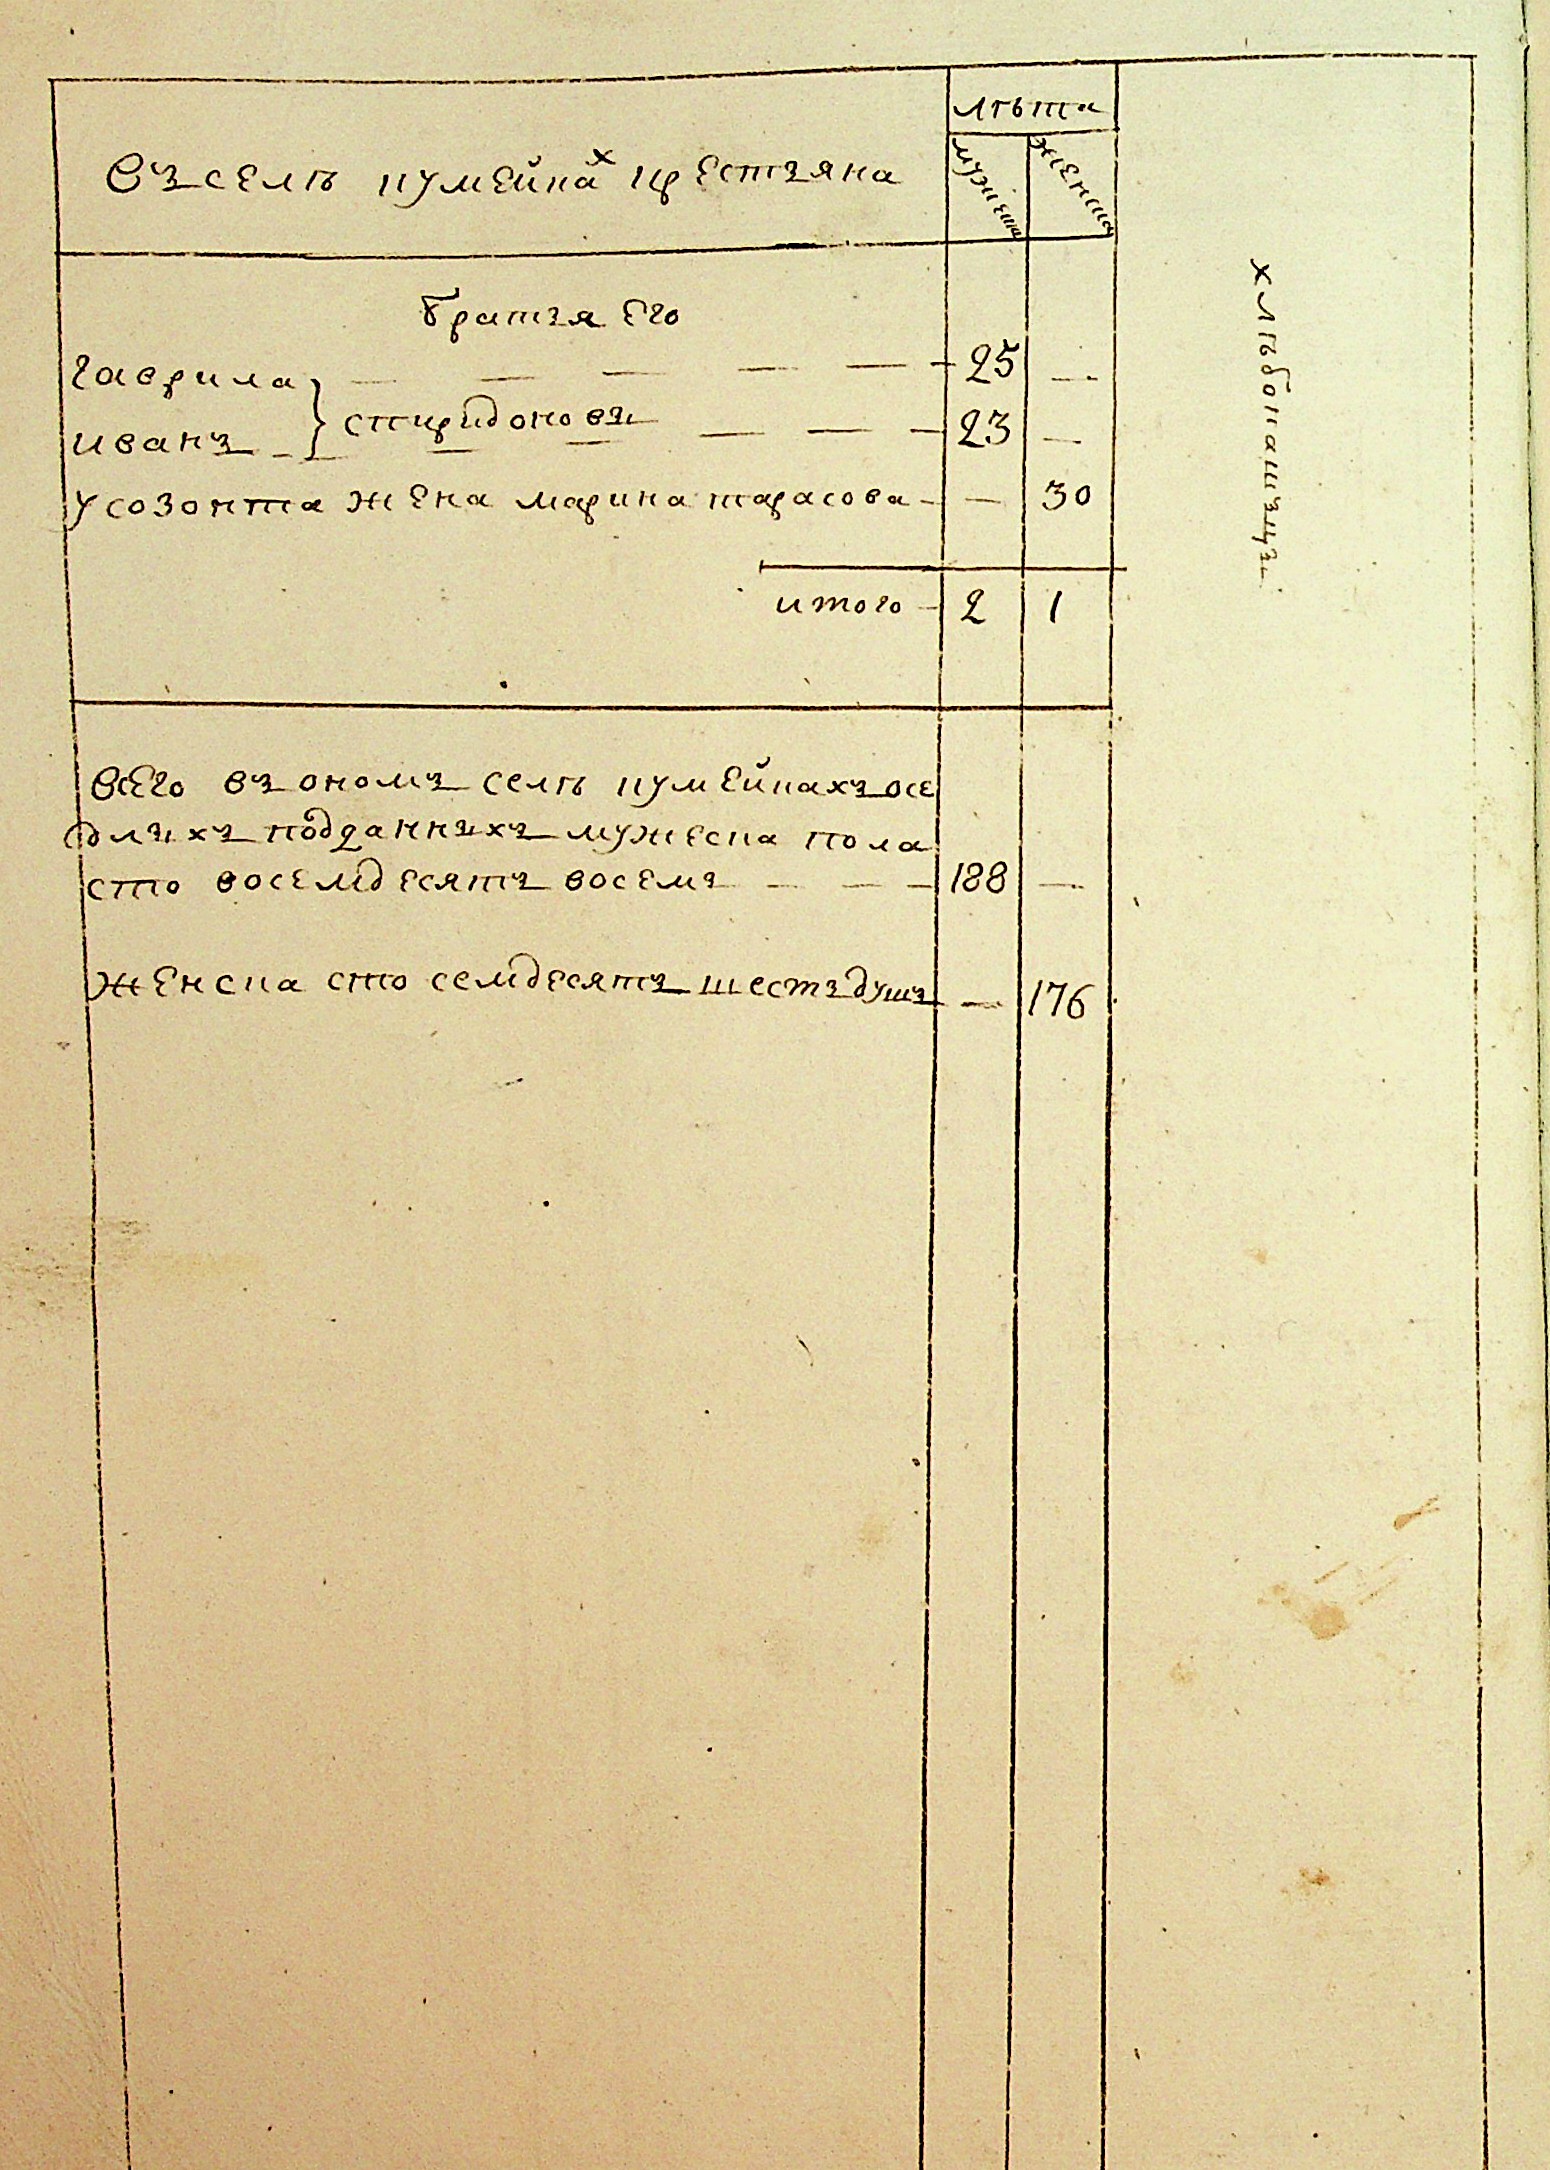 лѣта
въ селѣ кумейках крестьяна
мужеска
женска
братья его
гаврила 25
иванъ спиридоновы 23
у созонта жена марина тарасова 30
итого 2 1
всего въ ономъ селѣ кумейкахъ осе
длыхъ подданныхъ мужеска пола
сто восемдесятъ восемь 188
женска сто семдесятъ шесть душъ 176
хлѣбопашецъ